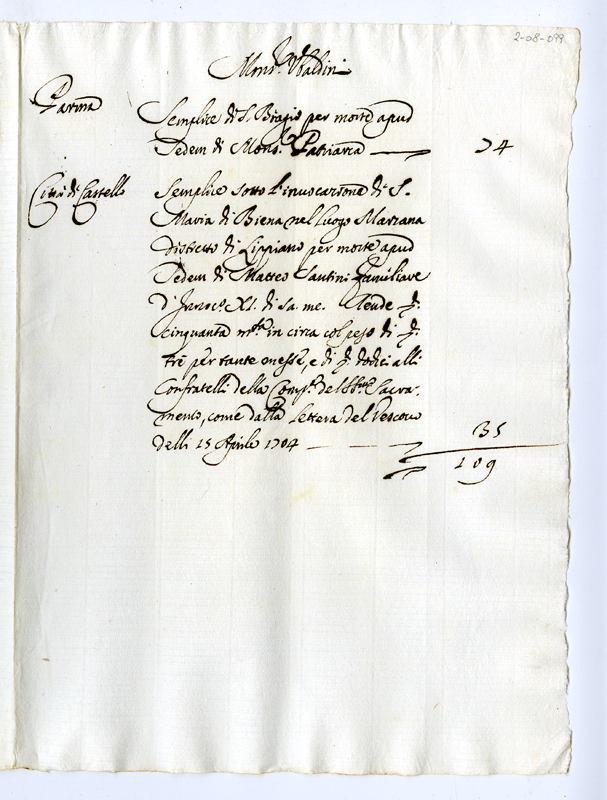 2-08-099
Mons.r Ubaldini
Parma
Semplice di S. Biagio per morte apud
Sedem di Mons.r Patriarca 74
Città di Castello
Semplice sotto l'invocazione di S.
Maria di Biena nel luogo Marzana
distretto di Lippiano per morte apud
Sedem di Matteo Santini familiare
d'Innoc.o XI. di sa. me. Rende
cinquanta m.ta in circa col peso di
trè per tante messe, e di dodici alli
Confratelli della Comp.a del SS.mo Sacra-
mento, come dalla lettera del Vescovo
delli 15 Aprile 1704 35
109